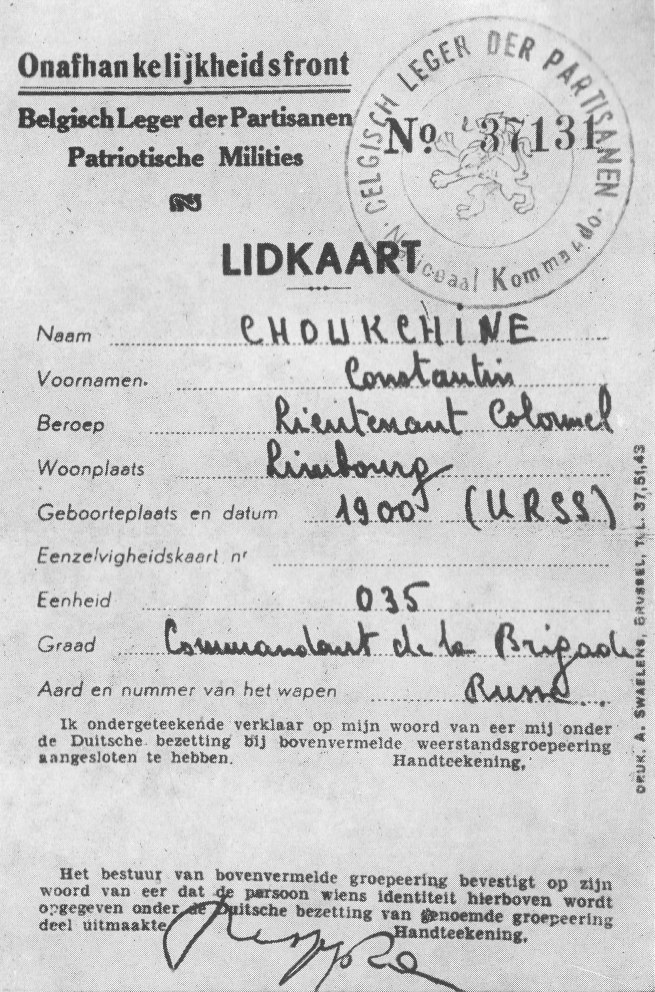 Onafhankelijkheidsfront
Belgisch Leger der Partisanen
Patriotische Milities
BELGISCH LEGER DER PARTISANEN
· Nationaal Kommando ·
No. 37131
LIDKAART
Naam CHOUKCHINE
Voornamen. Constantin
Beroep Lieutenant Colonnel
Woonplaats Limbourg
Geboorteplaats en datum 1900 (URSS)
Eenzelvigheidskaart nr
Eenheid 035
Graad Commandant de la Brigade
Aard en nummer van het wapen Russe
Ik ondergeteekende verklaar op mijn woord van eer mij onder
de Duitsche bezetting bij bovenvermelde weerstandsgroepeering
aangesloten te hebben. Handteekening,
Het bestuur van bovenvermelde groepeering bevestigt op zijn
woord van eer dat de persoon wiens identiteit hierboven wordt
opgegeven onder de Duitsche bezetting van genoemde groepeering
deel uitmaakte Handteekening,
DRUK. A. SWAELENS, BRUSSEL, TEL. 37,51,43